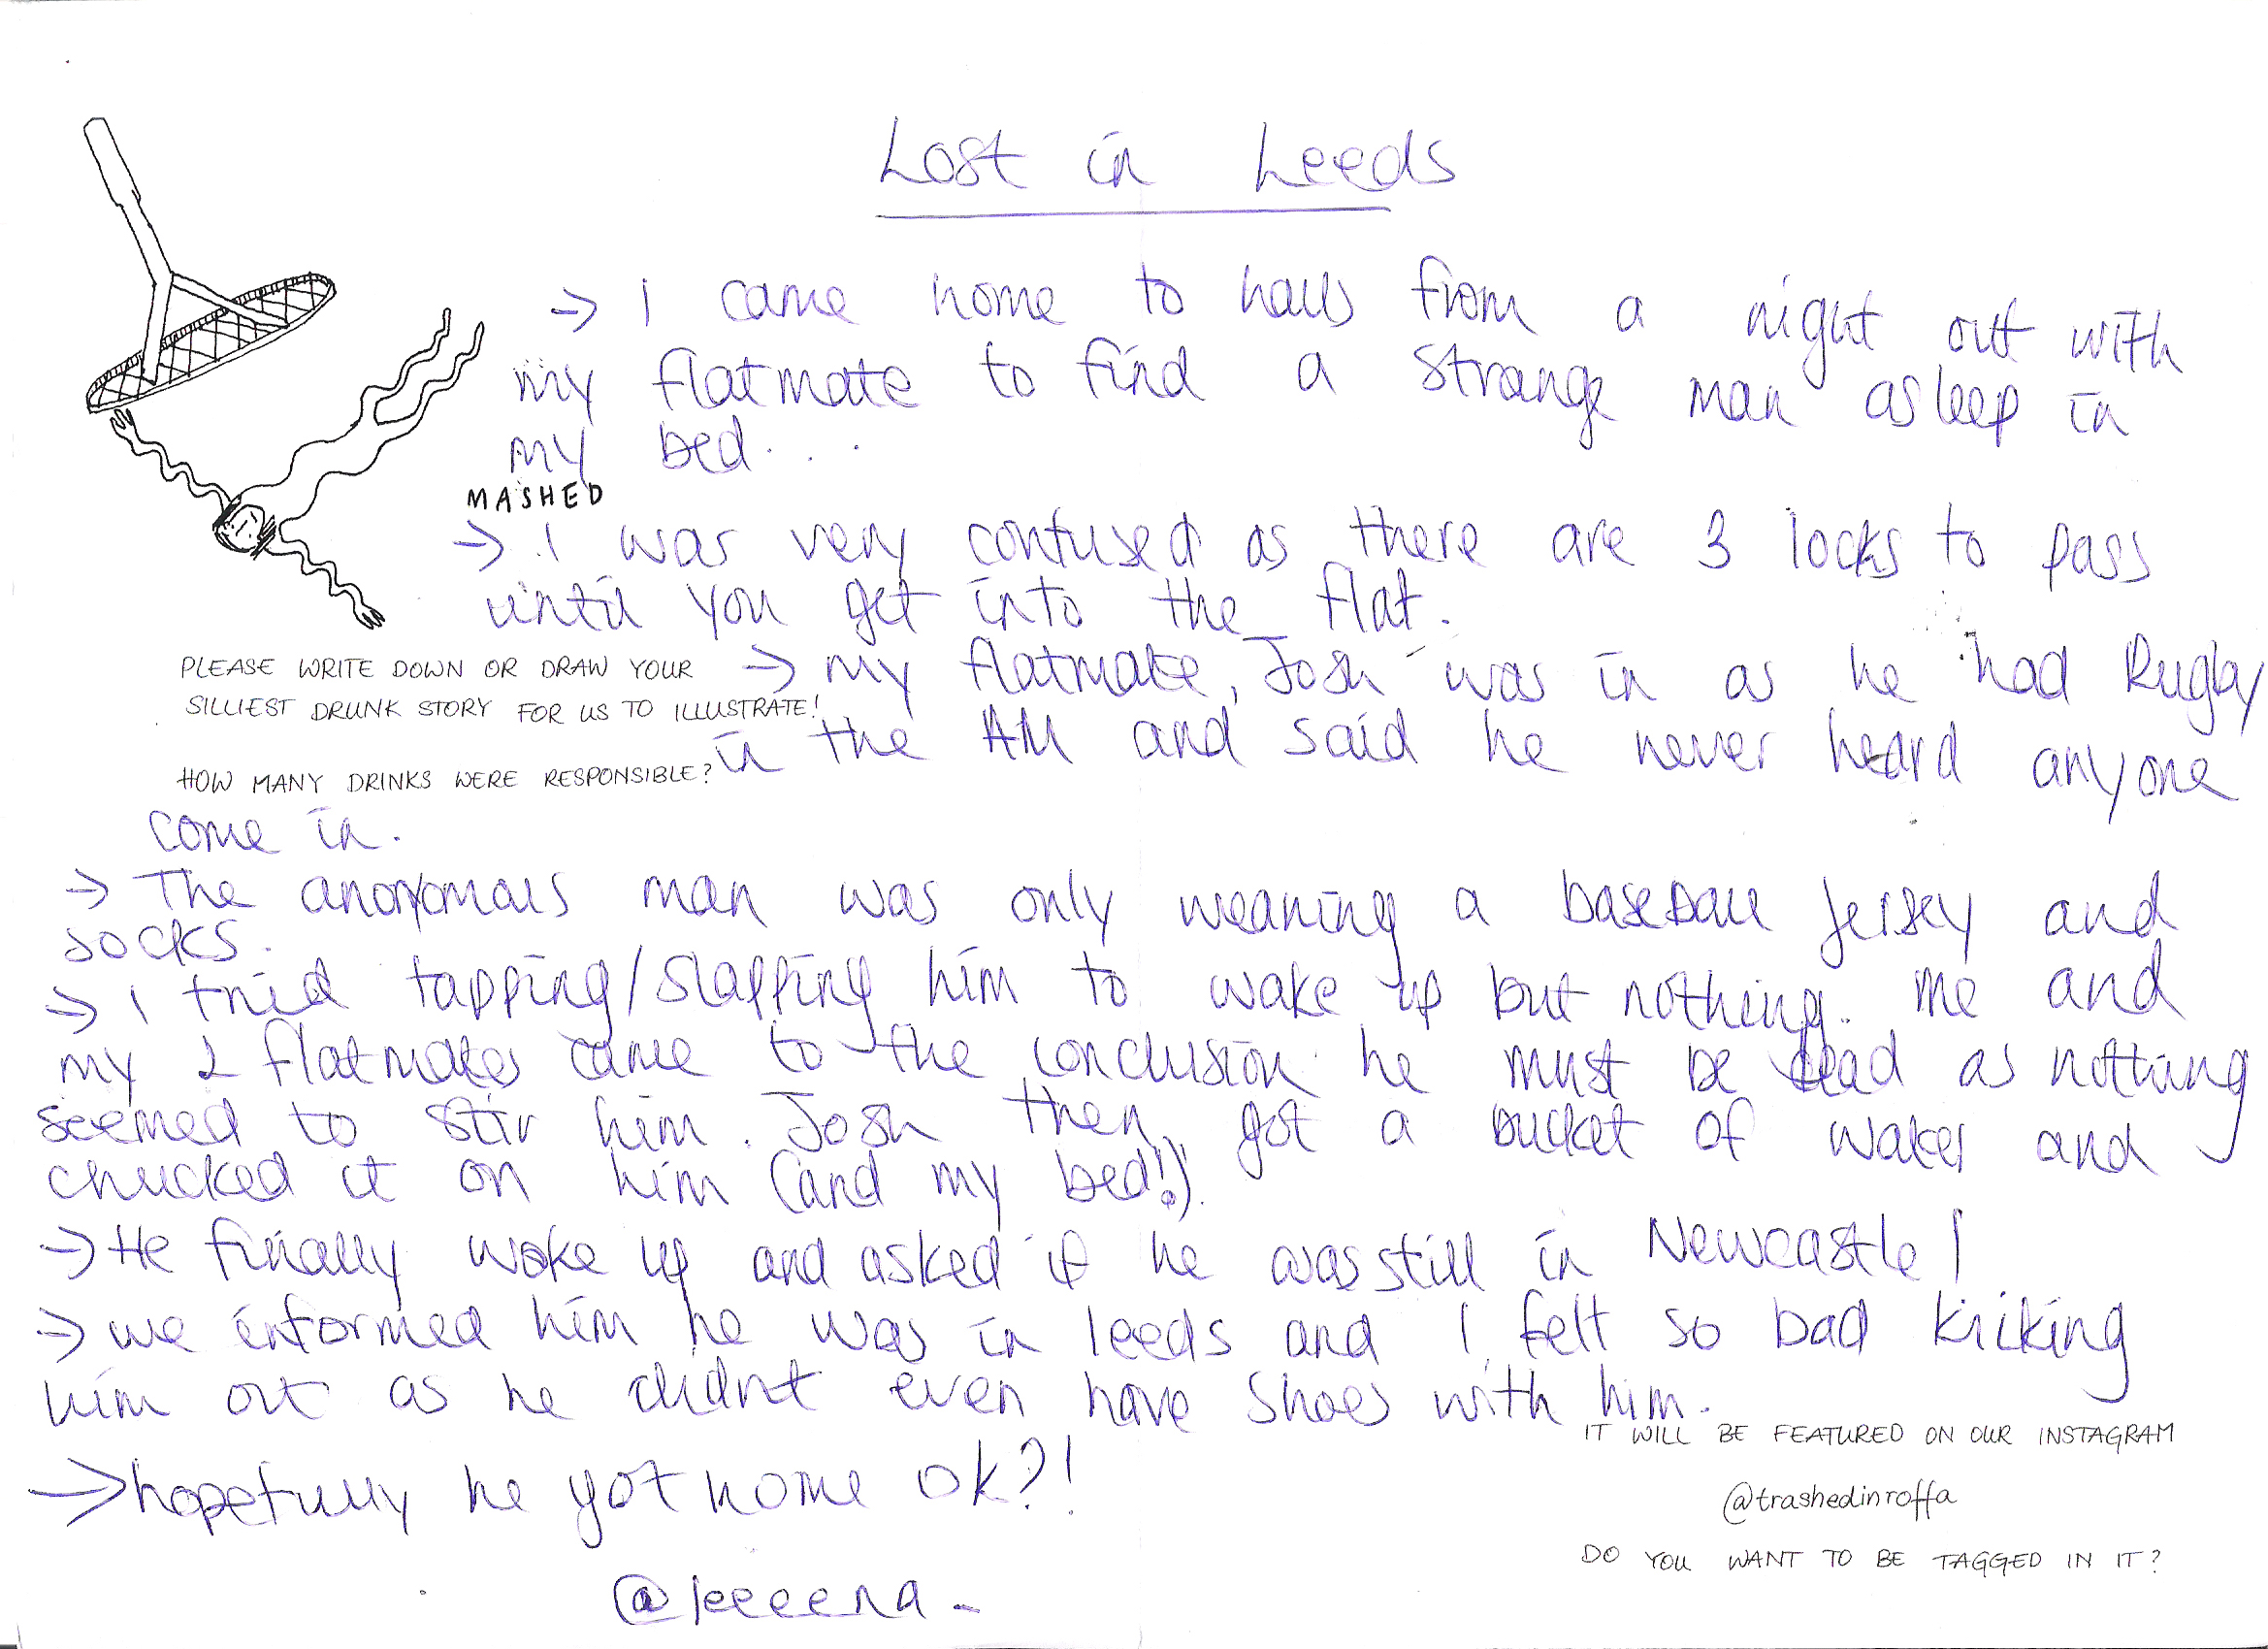 Lost in Leeds
→ I came home to halls from a night out with
my flatmate to find a strange man asleep in
my bed...
MASHED
→ I was very confused as there are 3 locks to pass
until you get into the flat.
PLEASE WRITE DOWN OR DRAW YOUR
SILLIEST DRUNK STORY FOR US TO ILLUSTRATE!
HOW MANY DRINKS WERE RESPONSIBLE?
→ my flatmate, Josh was in as he had Rugby
in the AM and said he never heard anyone
come in.
→ The anonyomous man was only wearing a baseball jersey and
socks.
→ I tried tapping/slapping him to wake up but nothing. Me and
my 2 flatmates came to the conclusion he must be dead as nothing
seemed to stir him. Josh then got a bucket of water and
chucked it on him (and my bed!).
→ He finally woke up and asked if he was still in Newcastle!
→ we informed him he was in leeds and I felt so bad kicking
him out as he didnt even have shoes with him.
→ hopefully he got home ok?!
@leeeena_
IT WILL BE FEATURED ON OUR INSTAGRAM
@trashedinroffa
DO YOU WANT TO BE TAGGED IN IT?